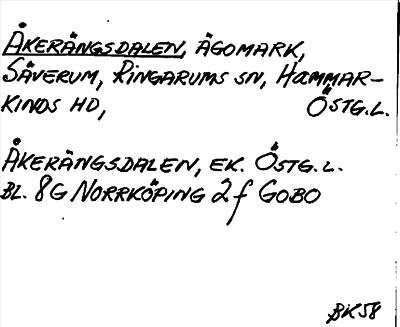 Åkerängsdalen, ägomark,
Säverum, Ringarums sn, Hammar-
kinds hd, Östg.l.
Åkerängsdalen, ek. Östg.l.
bl. 8G Norrköping 2f Gobo
BK58